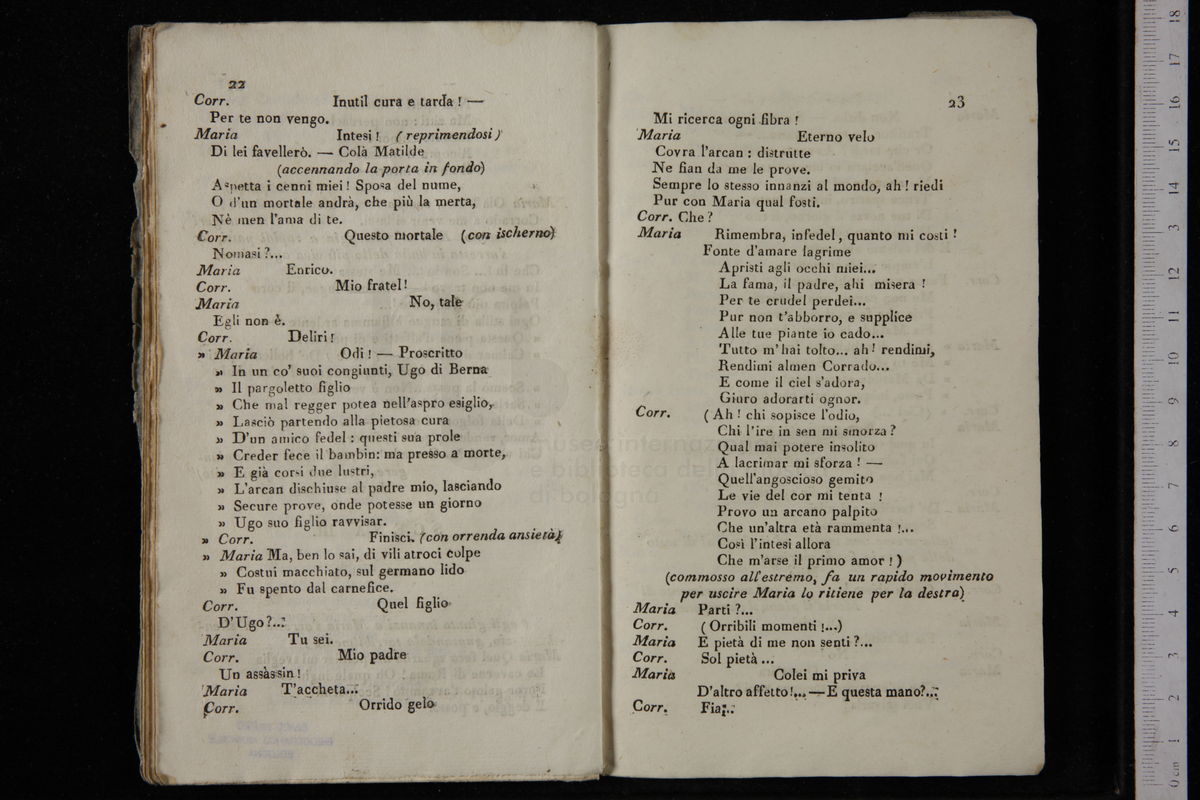 22
Corr. Inutil cura e tarda ! —
Per te non vengo.
Maria Intesi ! (reprimendosi)
Di lei favellerò. — Colà Matilde
(accennando la porta in fondo)
Aspetta i cenni miei ! Sposa del nume,
O d'un mortale andrà, che più la merta,
Nè men l'ama di te.
Corr. Questo mortale (con ischerno)
Nomasi ?...
Maria Enrico.
Corr. Mio fratel !
Maria No, tale
Egli non è.
Corr. Deliri !
» Maria Odi ! — Proscritto
» In un co' suoi congiunti, Ugo di Berna
» Il pargoletto figlio
» Che mal regger potea nell'aspro esiglio,
» Lasciò partendo alla pietosa cura
» D'un amico fedel : questi sua prole
» Creder fece il bambin: ma presso a morte,
» E già corsi due lustri,
» L'arcan dischiuse al padre mio, lasciando
» Secure prove, onde potesse un giorno
» Ugo suo figlio ravvisar.
» Corr. Finisci. (con orrenda ansietà)
» Maria Ma, ben lo sai, di vili atroci colpe
» Costui macchiato, sul germano lido
» Fu spento dal carnefice.
Corr. Quel figlio
D'Ugo ?...
Maria Tu sei.
Corr. Mio padre
Un assassin !
Maria T'accheta...
Corr. Orrido gelo
23
Mi ricerca ogni fibra !
Maria Eterno velo
Covra l'arcan : distrutte
Ne fian da me le prove.
Sempre lo stesso innanzi al mondo, ah ! riedi
Pur con Maria qual fosti.
Corr. Che ?
Maria Rimembra, infedel, quanto mi costi !
Fonte d'amare lagrime
Apristi agli occhi miei...
La fama, il padre, ahi misera !
Per te crudel perdei...
Pur non t'abborro, e supplice
Alle tue piante io cado...
Tutto m'hai tolto... ah ! rendimi,
Rendimi almen Corrado...
E come il ciel s'adora,
Giuro adorarti ognor.
Corr. (Ah ! chi sopisce l'odio,
Chi l'ire in sen mi smorza ?
Qual mai potere insolito
A lacrimar mi sforza ! —
Quell'angoscioso gemito
Le vie del cor mi tenta !
Provo un arcano palpito
Che un'altra età rammenta !...
Così l'intesi allora
Che m'arse il primo amor !)
(commosso all'estremo, fa un rapido movimento
per uscire Maria lo ritiene per la destra)
Maria Parti ?...
Corr. (Orribili momenti !...)
Maria E pietà di me non senti ?...
Corr. Sol pietà ...
Maria Colei mi priva
D'altro affetto !... — E questa mano ?...
Corr. Fia...
museo internaz
e biblioteca de
di bologna